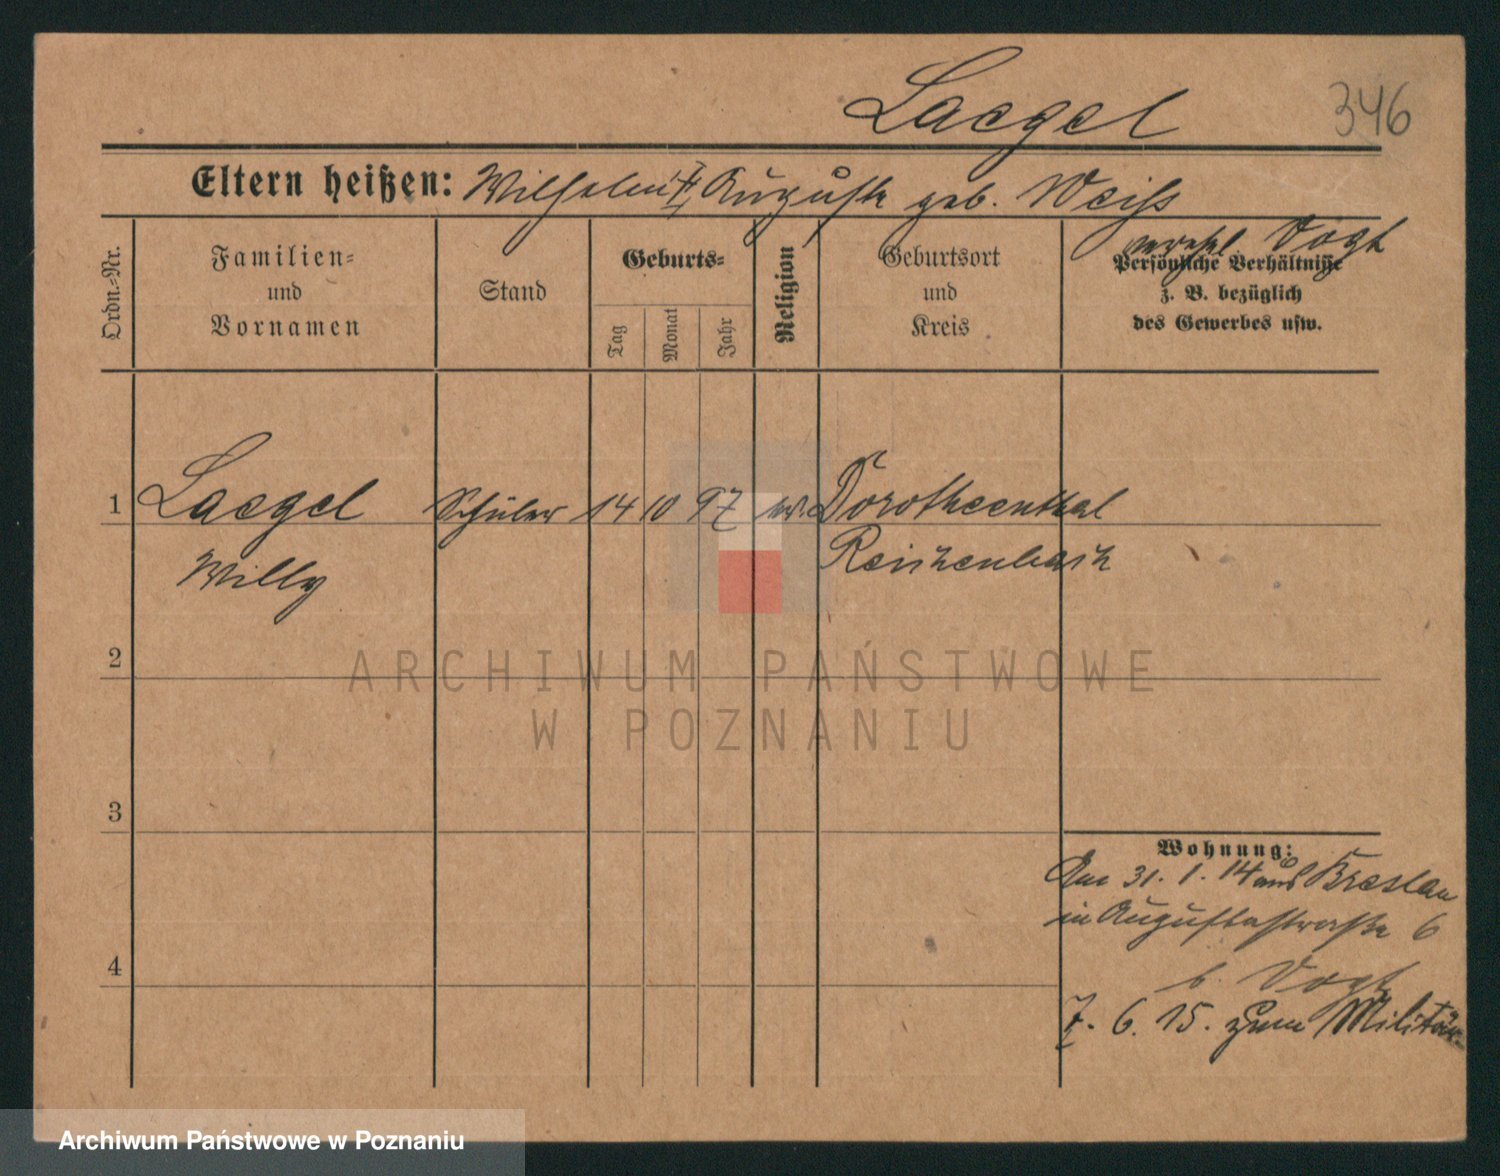 Laegel
346
Eltern heißen: Wilhelm †, Auguste geb. Weiß
verehel. Vogt
Ordn.-Nr.
Familien-
und
Vornamen
Stand
Geburts-
Tag
Monat
Jahr
Religion
Geburtsort
und
Kreis
Persönliche Verhältnisse
z. B. bezüglich
des Gewerbes usw.
1 Laegel Schüler 14 10 97 ev. Dorotheenthal
Willy Reichenbach
ARCHIWUM PAŃSTWOWE
W POZNANIU
2
3
4
Wohnung:
Am 31. 1. 14 aus Breslau
in Augustastraße 6
b. Vogt
7. 6. 15. zum Militär
Archiwum Państwowe w Poznaniu